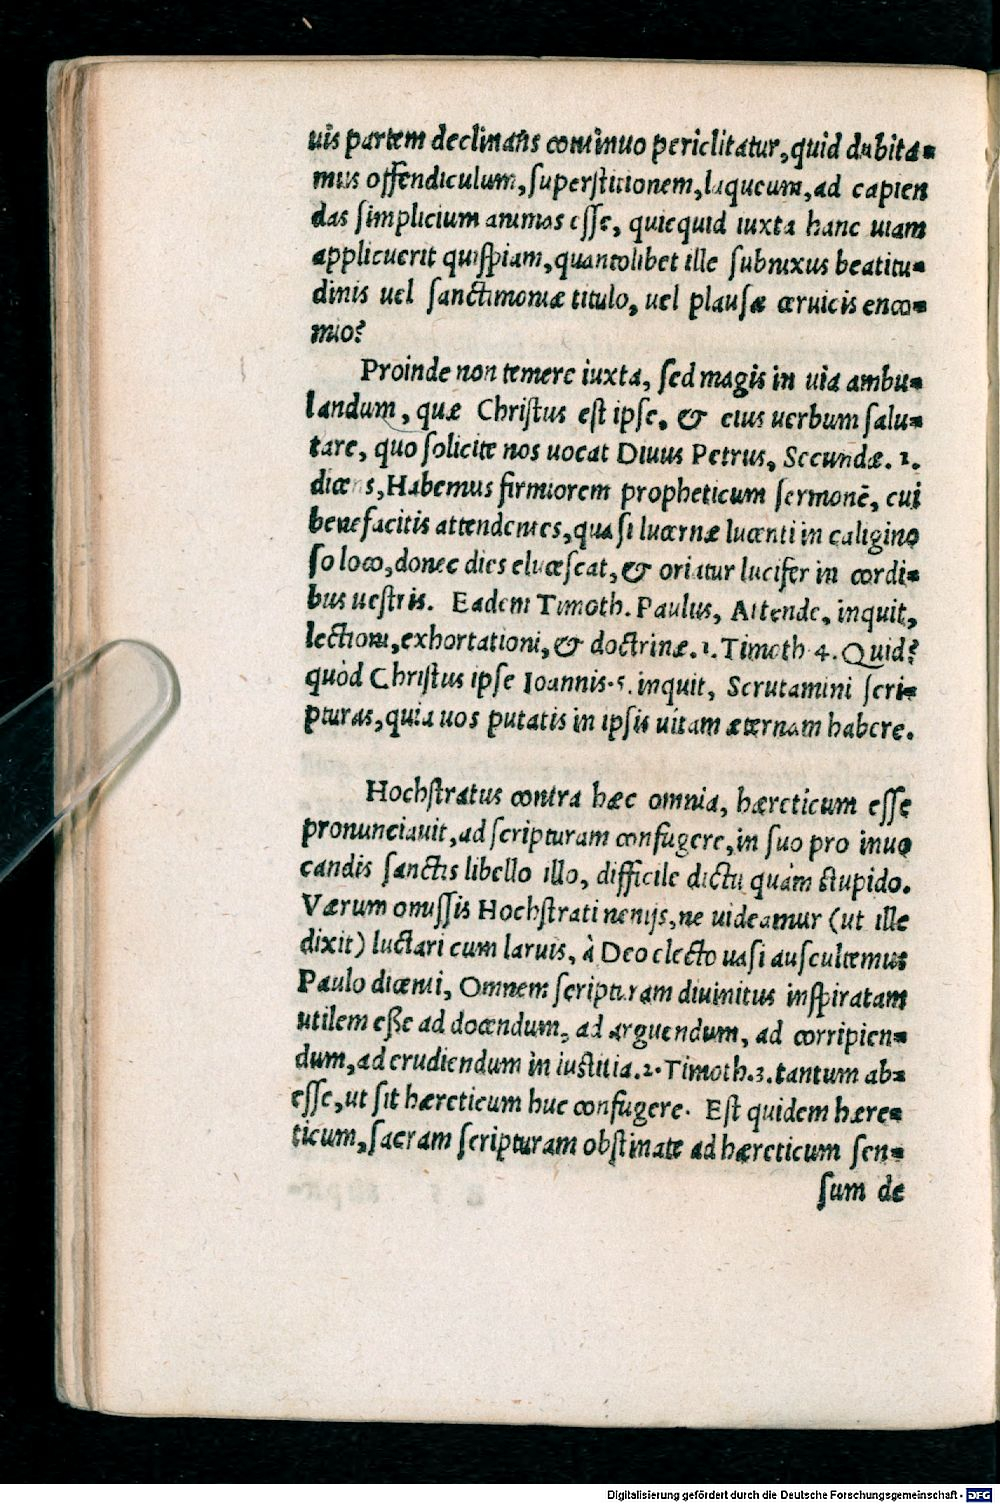 uis partem declinans continuo periclitatur, quid dubita-
mus offendiculum, superstitionem, laqueum, ad capien
das simplicium animas esse, quicquid iuxta hanc uiam
applicuerit quispiam, quantolibet ille subnixus beatitu-
dinis uel sanctimoniæ titulo, uel plausæ ceruicis enco-
mio?
Proinde non temere iuxta, sed magis in uia ambu-
landum, quæ Christus est ipse. & eius uerbum salu-
tare, quo solicite nos uocat Diuus Petrus, Secundæ. 1.
dicens, Habemus firmiorem propheticum sermonē, cui
benefacitis attendentes, quasi lucernæ lucenti in caligino
so loco, donec dies elucescat, & oriatur lucifer in cordi-
bus uestris. Eadem Timoth. Paulus, Attende, inquit,
lectioni, exhortationi, & doctrinæ. 1. Timoth. 4. Quid?
quòd Christus ipse Ioannis. 5. inquit, Scrutamini scri-
pturas, quia uos putatis in ipsis uitam æternam habere.
Hochstratus contra hæc omnia, hæreticum esse
pronunciauit, ad scripturam confugere, in suo pro inuo
candis sanctis libello illo, difficile dictu quàm stupido.
Værum omissis Hochstrati nenijs, ne uideamur (ut ille
dixit) luctari cum laruis, à Deo electo uasi auscultemus
Paulo dicenti, Omnem scripturam diuinitus inspiratam
utilem esse ad docendum, ad arguendum, ad corripien-
dum, ad erudiendum in iustitia. 2. Timoth. 3. tantum ab-
esse, ut sit hæreticum huc confugere. Est quidem hære-
ticum, sacram scripturam obstinate ad hæreticum sen-
sum de
Digitalisierung gefördert durch die Deutsche Forschungsgemeinschaft - DFG